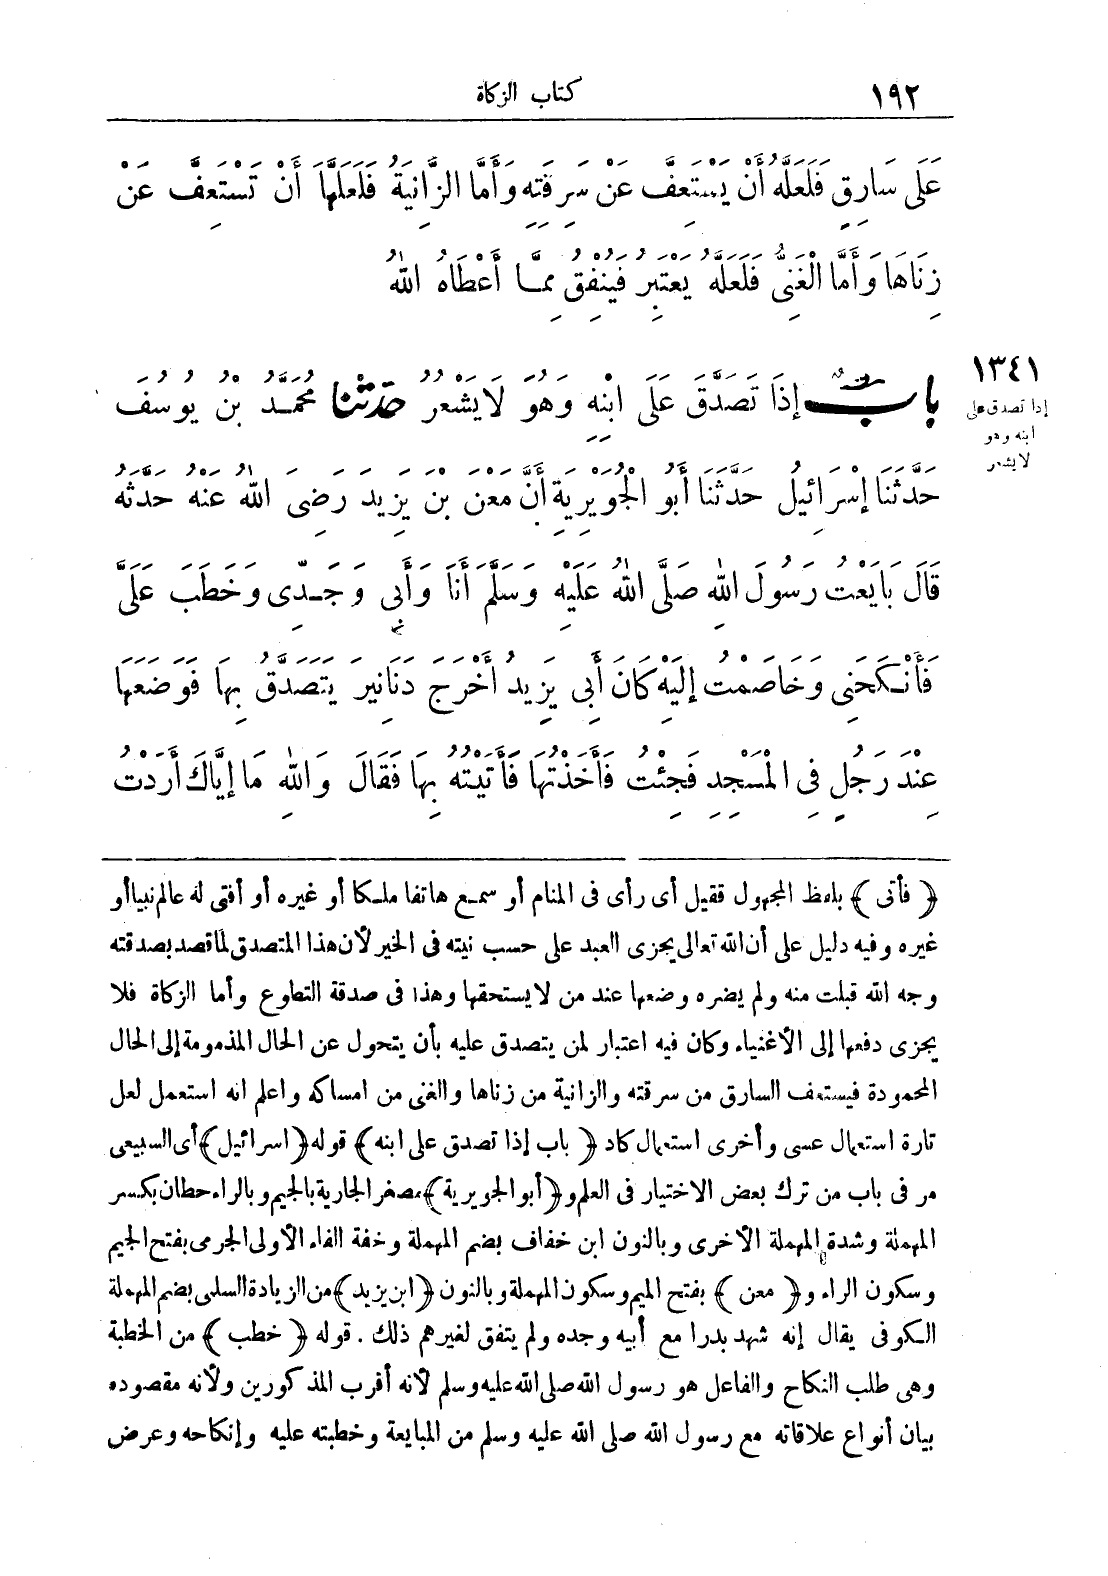 ١٩٢ كتاب الزكاة
عَلَى سَارِقٍ فَلَعَلَّهُ أَنْ يَسْتَعِفَّ عَنْ سَرِقَتِهِ وَأَمَّا الزَّانِيَةُ فَلَعَلَّهَا أَنْ تَسْتَعِفَّ عَنْ
زِنَاهَا وَأَمَّا الْغَنِىُّ فَلَعَلَّهُ يَعْتَبِرُ فَيُنْفِقُ مِمَّا أَعْطَاهُ اللّٰهُ
١٣٤١
إذا تصدق على
ابنه وهو
لا يشعر
بابٌ إِذَا تَصَدَّقَ عَلَى ابْنِهِ وَهُوَ لَا يَشْعُرُ حدثنا مُحَمَّدُ بْنُ يُوسُفَ
حَدَّثَنَا إِسْرَائِيلُ حَدَّثَنَا أَبُو الْجُوَيْرِيَةِ أَنَّ مَعْنَ بْنَ يَزِيدَ رَضِىَ اللّٰهُ عَنْهُ حَدَّثَهُ
قَالَ بَايَعْتُ رَسُولَ اللّٰهِ صَلَّى اللّٰهُ عَلَيْهِ وَسَلَّمَ أَنَا وَأَبِى وَجَدِّى وَخَطَبَ عَلَىَّ
فَأَنْكَحَنِى وَخَاصَمْتُ إِلَيْهِ كَانَ أَبِى يَزِيدُ أَخْرَجَ دَنَانِيرَ يَتَصَدَّقُ بِهَا فَوَضَعَهَا
عِنْدَ رَجُلٍ فِى الْمَسْجِدِ فَجِئْتُ فَأَخَذْتُهَا فَأَتَيْتُهُ بِهَا فَقَالَ وَاللّٰهِ مَا إِيَّاكَ أَرَدْتُ
﴿ فأتى ﴾ بلفظ المجهول فقيل أى رأى فى المنام أو سمع هاتفا ملكا أو غيره أو أفتى له عالم نبيا أو
غيره وفيه دليل على أن الله تعالى يجزى العبد على حسب نيته فى الخير لأن هذا المتصدق لما قصد بصدقته
وجه الله قبلت منه ولم يضره وضعها عند من لا يستحقها وهذا فى صدقة التطوع وأما الزكاة فلا
يجزى دفعها إلى الأغنياء وكان فيه اعتبار لمن يتصدق عليه بأن يتحول عن الحال المذمومة إلى الحال
المحمودة فيستعف السارق من سرقته والزانية من زناها والغنى من امساكه واعلم انه استعمل لعل
تارة استعمال عسى وأخرى استعمال كاد ﴿ باب إذا تصدق على ابنه ﴾ قوله ﴿ اسرائيل ﴾ أى السبيعى
مر فى باب من ترك بعض الاختيار فى العلم و﴿ أبو الجويرية ﴾ مصغر الجارية بالجيم وبالراء حطان بكسر
المهملة وشدة المهملة الأخرى وبالنون ابن خفاف بضم المهملة وخفة الفاء الأولى الجرمى بفتح الجيم
وسكون الراء و﴿ معن ﴾ بفتح الميم وسكون المهملة وبالنون ﴿ ابن يزيد ﴾ من الزيادة السلمى بضم المهملة
الكوفى يقال إنه شهد بدرا مع أبيه وجده ولم يتفق لغيرهم ذلك . قوله ﴿ خطب ﴾ من الخطبة
وهى طلب النكاح والفاعل هو رسول الله صلى الله عليه وسلم لأنه أقرب المذكورين ولأنه مقصوده
بيان أنواع علاقاته مع رسول الله صلى الله عليه وسلم من المبايعة وخطبته عليه وإنكاحه وعرض